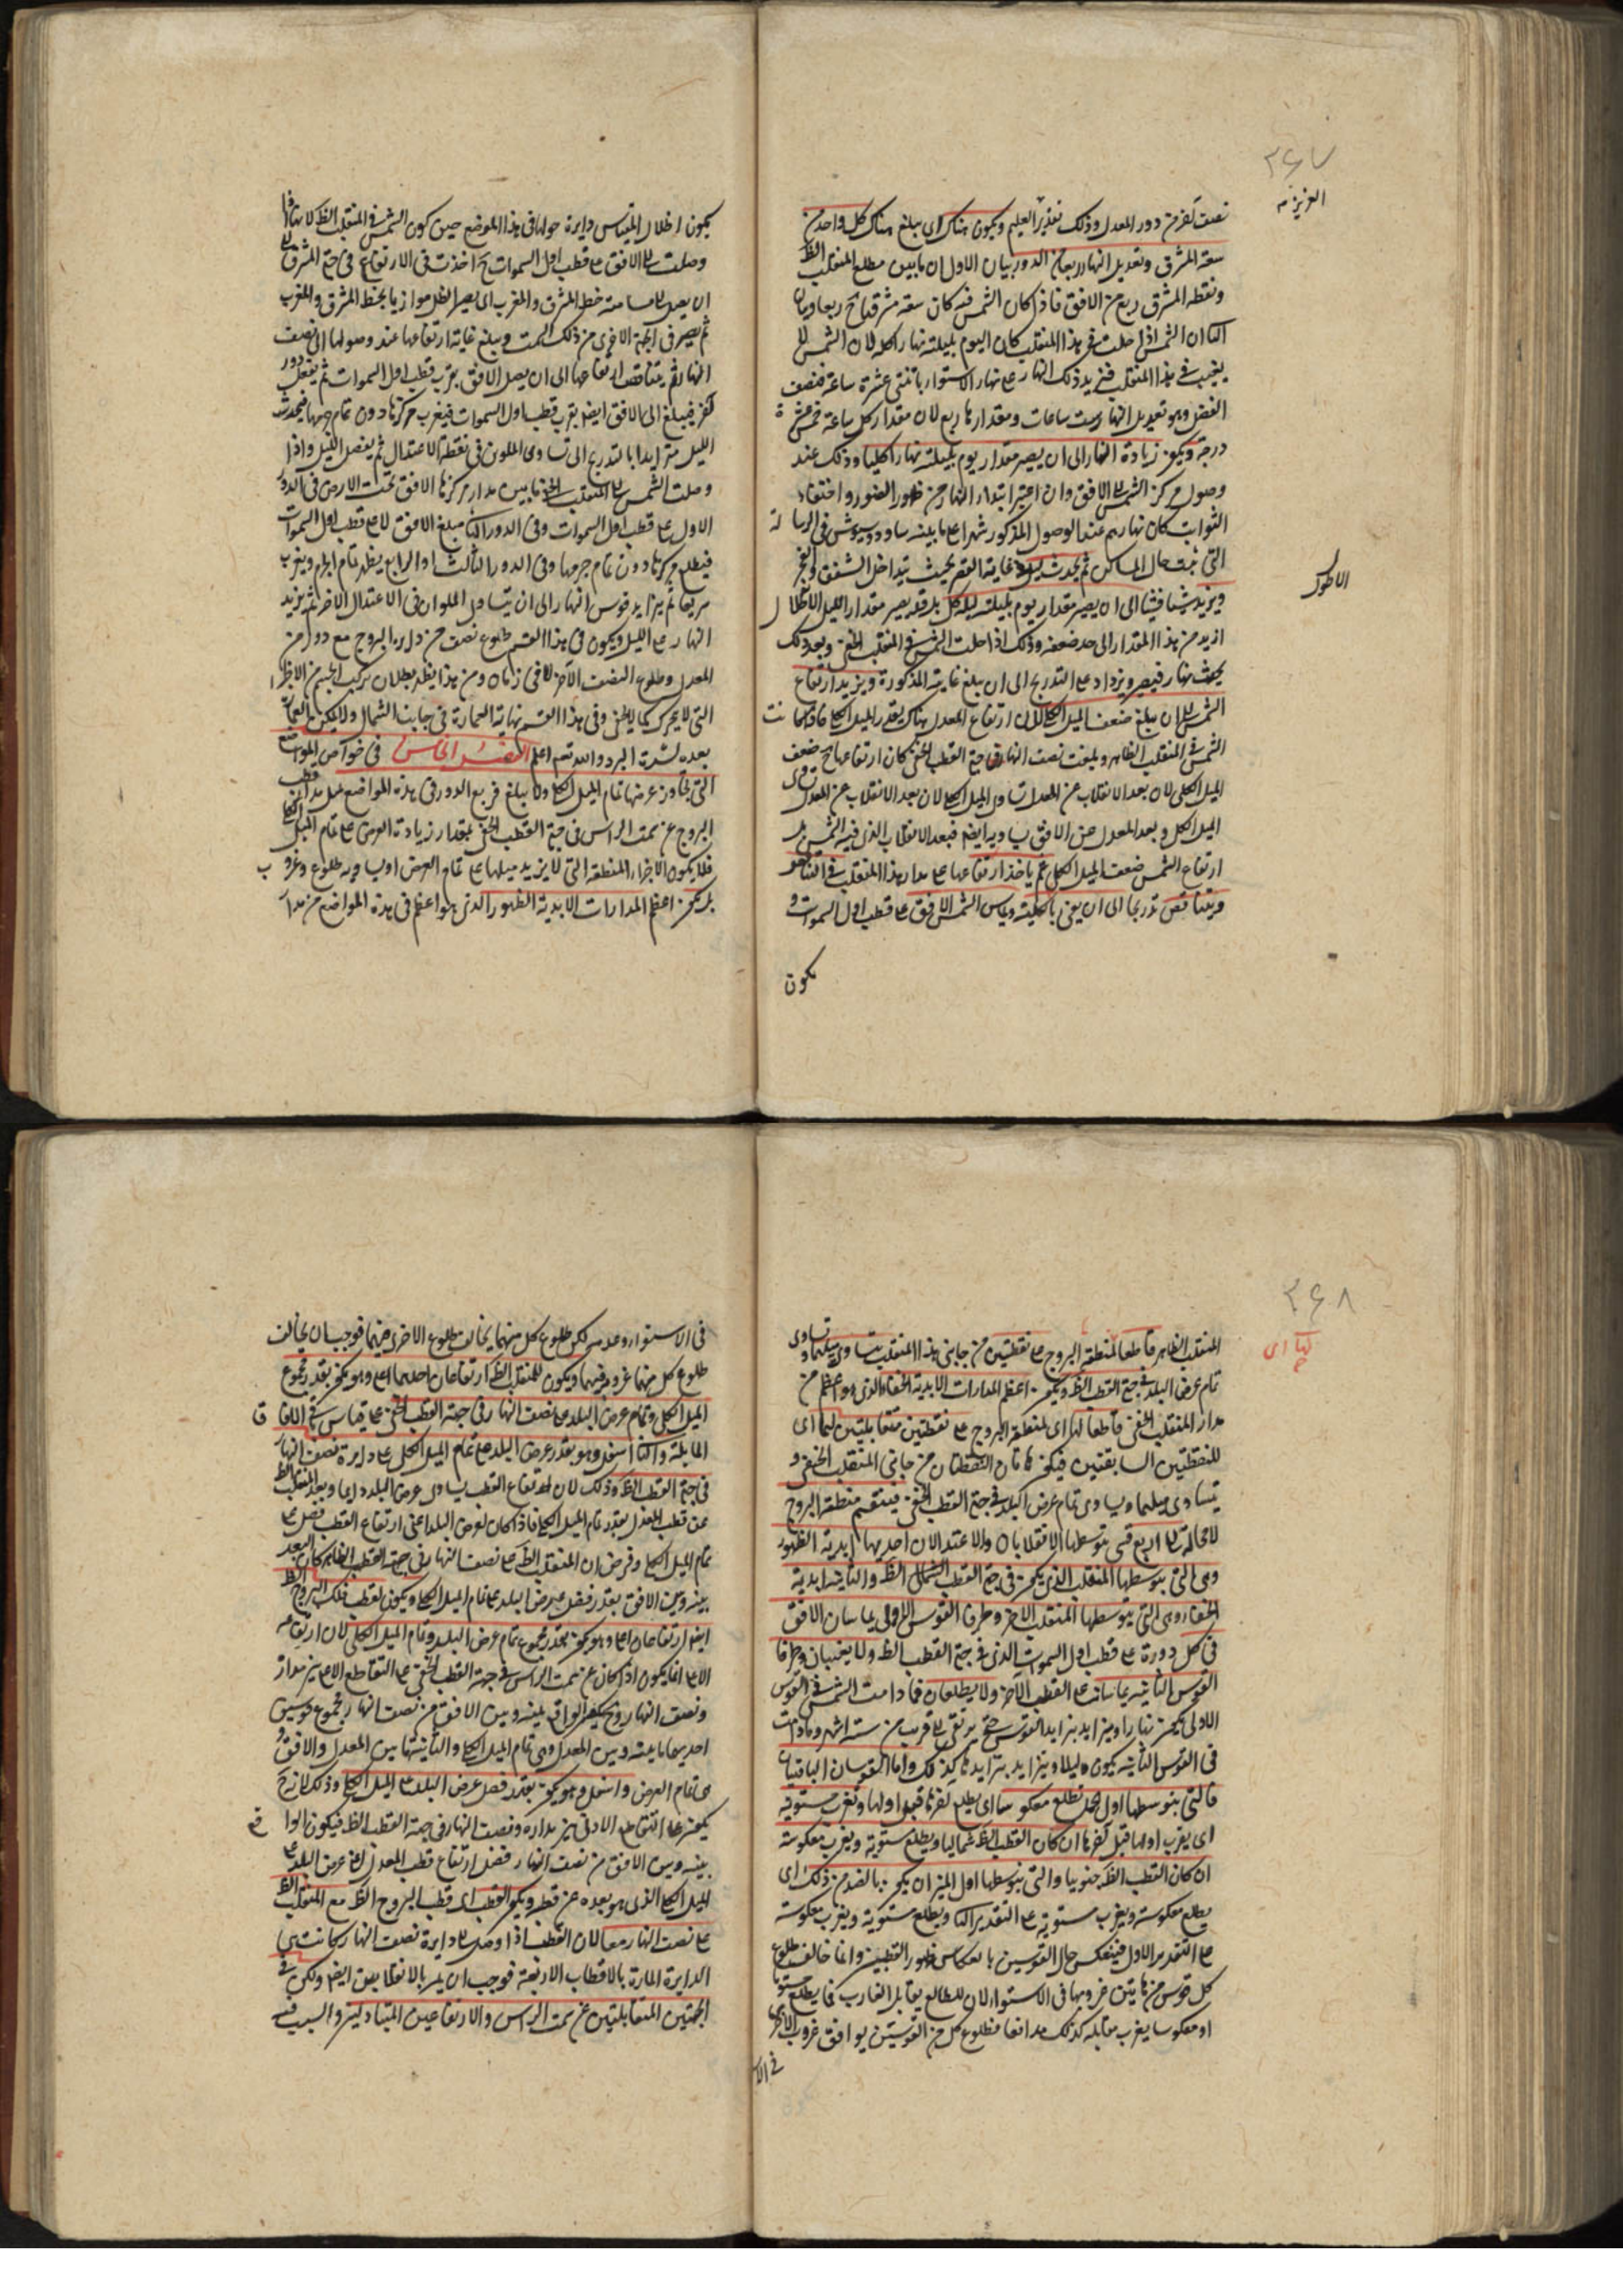 ٣٦٧
العزيز
نصف آخر من دور المعدل وذلك تقدير العليم ويكون هناك اى يبلغ هناك كل واحد من
سعة المشرق وتعديل النهار ربعا من الدور بيان الاول ان ما بين مطلع المنقلب الظ
ونقطة المشرق ربع من الافق فاذا كان الشمس فيه كان سعة مشرقها ح ربعا وبيان
الثا ان الشمس اذا حلت فى هذا المنقلب كان اليوم بليلته نهارا كله لان الشمس لا
يغيب فى هذا المنقلب فيزيد ذلك النهار على نهار الاستواء باثنتى عشرة ساعة فنصف
الفضل وهو تعديل النهار ست ساعات ومقدارها ربع لان مقدار كل ساعة خمس عشرة
درجة ويكون زيادة النهار الى ان يصير مقدار يوم بليلته نهارا كليا وذلك عند
وصول مركز الشمس الى الافق وان اعتبر ابتداء النهار من ظهور الضوء واختفاء
الثوابت كان نهارهم عند الوصول المذكور شهرا على ما بينه ساودوسيوش فى الرسالة
التى بينت حال المساكن ثم يحدث ليل فى غاية القصر بحيث يتداخل الشفق والفجر
ويزيد شيئا فشيئا الى ان يصير مقدار يوم بليلته ليلا كله بل قد يصير مقدار الليل الاطول
الاطول
ازيد من هذا المقدار الى حد ضعفه وذلك اذا حلت الشمس فى المنقلب الخفى وبعد ذلك
يحدث نهار قصير ويزداد على التدريج الى ان يبلغ غايته المذكورة ويزيد ارتفاع
الشمس الى ان يبلغ ضعف الميل الكلى لان ارتفاع المعدل هناك بقدر الميل الكلى فاذا كانت
الشمس فى المنقلب الظاهر وبلغت نصف النهار فى جهة القطب الخفى كان ارتفاعها ح ضعف
الميل الكلى لان بعد الانقلاب عن المعدل يساوى الميل الكلى لان بعد الانقلاب عن المعدل يساوى
الميل الكلى وبعد المعدل عن الافق يساويه ايضا فبعد الانقلاب الذى فيه الشمس
ارتفاع الشمس ضعف الميل الكلى ثم ياخذ ارتفاعها على مدار هذا المنقلب فى التناقص
فيتناقص تدريجا الى ان يفنى بالكلية ويماس الشمس الافق على قطب اول السموات و
يكون
يكون اظلال المقياس دايرة حولها فى هذا الموضع حين كون الشمس فى المنقلب الظ لانها اذا
وصلت الى الافق على قطب اول السموات ح اخذت فى الارتفاع فى جهة المشرق الى
ان يصل الى مسامتة خط المشرق والمغرب اى يصير الظل موازيا لخط المشرق والمغرب
ثم يصير فى الجهة الاخرى من ذلك السمت ويبلغ غاية ارتفاعها عند وصولها الى نصف
النهار ثم يتناقص ارتفاعها الى ان يصل الافق بقرب قطب اول السموات ثم يفعل دور
آخر فيبلغ الى الافق ايضا بقرب قطب اول السموات فيغرب مركزها دون تمام جرمها فيحدث
الليل متزايدا بالتدريج الى تساوى الملوين فى نقطة الاعتدال ثم يفضل الليل واذا
وصلت الشمس الى المنقلب الخفى ماس مدار مركزها الافق تحت الارض فى الدور
الاول على قطب اول السموات وفى الدور الثا يبلغ الافق لا على قطب اول السموات
فيطلع مركزها دون تمام جرمها وفى الدور الثالث او الرابع يظهر تمام الجرم ويغرب
سريعا ثم يتزايد قوس النهار الى ان يتساوى الملوان فى الاعتدال الآخر ثم يزيد
النهار على الليل ويكون فى هذا القسم طلوع نصف من دايرة البروج مع دور من
المعدل وطلوع النصف الآخر لا فى زمان ومن هذا يظهر بطلان تركيب الجسم من الاجزاء
التى لا يتجزى كما لا يخفى وفى هذا القسم نهاية العمارة فى جانب الشمال ولا يمكن العمارة
بعده لشدة البرد والله تعم اعلم القسم الخامس فى خواص المواضع
التى يجاوز عرضها تمام الميل الكلى ولا يبلغ ربع الدور فى هذه المواضع يميل مدار قطب
البروج عن سمت الراس فى جهة القطب الخفى بمقدار زيادة العرض على تمام الميل الكلى
فلا يكون لاجزاء المنطقة التى لا يزيد ميلها على تمام العرض او يساويه طلوع وغروب
بل يكون اعظم المدارات الابدية الظهور الذى هو اعظم فى هذه المواضع من مدار
٣٦٨
المنقلب الظاهر قاطعا لمنطقة البروج على نقطتين من جانبى هذا المنقلب يتساوى ميلهما ويساوى
تمام عرض البلد فى جهة القطب الظ ويكون اعظم المدارات الابدية الخفاء الذى هو اعظم من
مدار المنقلب الخفى قاطعا لها اى لمنطقة البروج على نقطتين متقابلتين لهما اى
للنقطتين السابقتين فيكون هاتان النقطتان من جانبى المنقلب الخفى و
يتساوى ميلهما ويساوى تمام عرض البلد فى جهة القطب الخفى فينقسم منطقة البروج
لا محالة الى اربع قسى يتوسطها الانقلابان والاعتدالان احديها ابدية الظهور
وهى التى يتوسطها المنقلب الذى يكون فى جهة القطب الشمالى الظ والثانية ابدية
الخفاء وهى التى يتوسطها المنقلب الآخر وطرفا القوس الاولى يماسان الافق
فى كل دورة على قطب اول السموات الذى فى جهة القطب الظ ولا يغيبان وطرفا
القوس الثانية يماسانه على القطب الآخر ولا يطلعان فما دامت الشمس فى القوس
الاولى يكون نهارا ويتزايد بتزايد القوس حتى يرتقى الى قريب من ستة اشهر وما دامت
فى القوس الثانية يكون ليلا ويتزايد بتزايدها كذلك واما القوسان الباقيتان
فالتى يتوسطها اول الحمل تطلع معكوسا اى يطلع آخرها قبل اولها وتغرب مستوية
اى يغرب اولها قبل آخرها ان كان القطب الظ شماليا ويطلع مستوية ويغرب معكوسة
ان كان القطب الظ جنوبيا والتى يتوسطها اول الميزان يكون بالضد من ذلك اى
يطلع معكوسة ويغرب مستوية على التقدير الثا ويطلع مستوية ويغرب معكوسة
على التقدير الاول فينعكس حال القوسين بانعكاس ظهور القطبين وانما خالف طلوع
كل قوس من هاتين غروبها فى الاستواء لان الطالع يقابل الغارب فما يطلع مستويا
او معكوسا يغرب مقابله كذلك فطلوع كل من القوسين يوافق غروب الاخرى
فى الا
فى الاستواء وعدمه لكن طلوع كل منهما يخالف طلوع الاخرى فيهما فوجب ان يخالف
طلوع كل منهما غروبه فيهما ويكون للمنقلب الظ ارتفاعان احدهما اعلى وهو يكون بقدر مجموع
الميل الكلى وتمام عرض البلد على نصف النهار فى جهة القطب الخفى على قياس ما فى الافاق
المايلة والثا اسفل وهو بقدر عرض البلد على تمام الميل الكلى على دايرة نصف النهار
فى جهة القطب الظ وذلك لان ارتفاع القطب يساوى عرض البلد دايما وبعد المنقلب الظ
عن قطب المعدل بقدر تمام الميل الكلى فاذا كان لعرض البلد اعنى ارتفاع القطب فضل على
تمام الميل الكلى وفرض ان المنقلب الظ على نصف النهار فى جهة القطب الظاهر كان البعد
بينه وبين الافق بقدر فضل عرض البلد على تمام الميل الكلى ويكون لقطب فلك البروج الظ
ايضا ارتفاعان اعلى وهو يكون بقدر مجموع تمام عرض البلد وتمام الميل الكلى لان ارتفاعه
الاعلى انما يكون اذا كان عن سمت الراس فى جهة القطب الخفى على التقاطع الاعلى بين مداره
ونصف النهار وح يكون الواقع بينه وبين الافق من نصف النهار مجموع قوسين
احديهما ما بينه وبين المعدل وهى تمام الميل الكلى والثانية ما بين المعدل والافق و
هى تمام العرض واسفل وهو يكون بقدر فضل عرض البلد على الميل الكلى وذلك لانه ح
يكون على التقاطع الادنى بين مداره ونصف النهار فى جهة القطب الظ فيكون الواقع
بينه وبين الافق من نصف النهار فضل ارتفاع قطب المعدل اعنى عرض البلد على
الميل الكلى الذى هو بعده عن قطبه ويكون القطب اى قطب البروج الظ مع المنقلب الظ
على نصف النهار معا لان القطب اذا وصل الى دايرة نصف النهار كانت هى
الدايرة المارة بالاقطاب الاربعة فوجب ان يمر بالانقلابين ايضا ولكن فى
الجهتين المتقابلتين عن سمت الراس والارتفاعين المتبادلين والسبب فيه